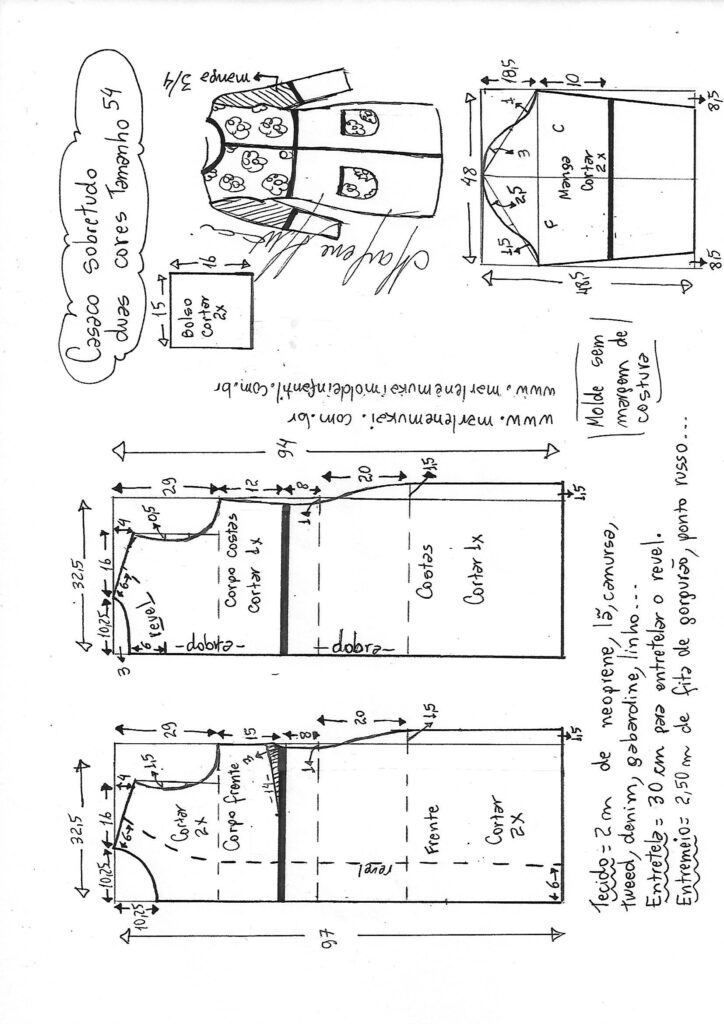 Casaco sobretudo
duas cores Tamanho 54
manga 3/4
15
16
Bolso
Cortar
2x
Marlene Mukai
www.marlenemukai.com.br
www.marlenemukaimoldeinfantil.com.br
18,5
10
48
1
3
2,5
1,5
F
C
Manga
Cortar
2x
48,5
8,5
8,5
Molde sem
margem de
costura
94
29
12
8
20
32,5
16
4
10,25
6
0,5
revel
6
3
1
1,5
1,5
Corpo costas
Cortar 1x
-dobra-
-dobra-
Costas
Cortar 1x
29
15
8
20
32,5
16
4
10,25
10,25
6
1,5
3
-14-
1
1,5
1,5
Cortar
2x
Corpo frente
revel
Frente
Cortar
2x
6
97
Tecido = 2 m de neoprene, lã, camursa,
tweed, denim, gabardine, linho...
Entretela = 30 cm para entretelar o revel.
Entremeio = 2,50 m de fita de gorgurão, ponto russo...